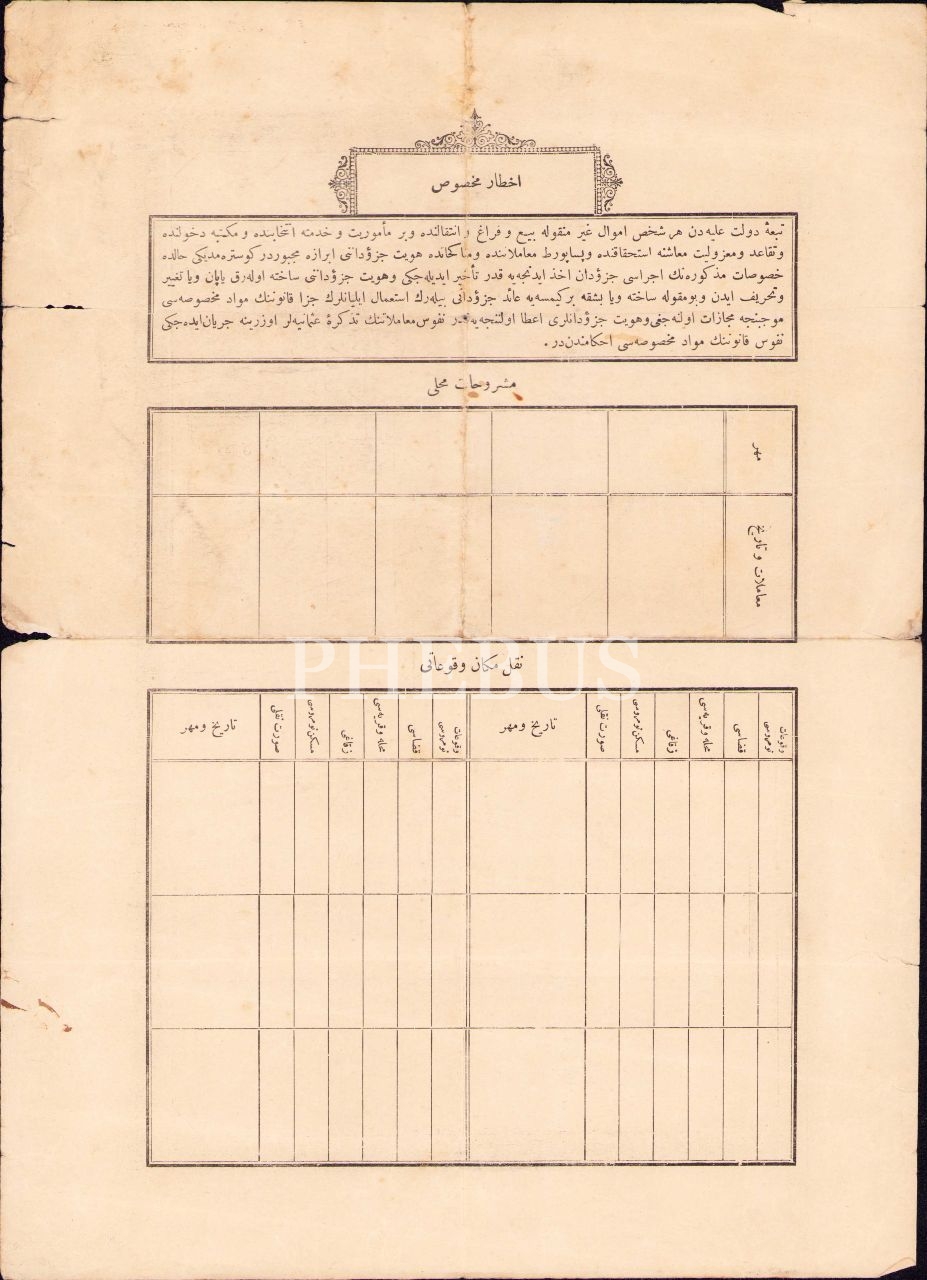 اخطار مخصوص
تبعهٔ دولت علیه‌دن هر شخص اموال غیر منقوله بیع و فراغ و انتقالنده و بر مأموریت و خدمته انتخابنده و مکتبه دخولنده
و تقاعد و معزولیت معاشنه استحقاقنده و پساپورط معاملاسنده و مناکحاتده هویت جزؤدانی ابرازه مجبوردر کوستره‌مدیکی حالده
خصوصات مذکوره‌نك اجراسی جزؤدان اخذ ایدنجه‌یه قدر تأخیر ایدیله‌جکی و هویت جزؤداننی ساخته اوله‌رق یاپان ویا تغییر
و تحریف ایدن و بومقوله ساخته ویا بشقه برکیمسه‌یه عائد جزؤدانی بیله‌رك استعمال ایلیانلرك جزا قانوننك مواد مخصوصه‌سی
موجبنجه مجازات اولنه‌جغی و هویت جزؤدانلری اعطا اولننجه‌یه قدر نفوس معاملاتنك تذکرهٔ عثمانیه‌لر اوزرینه جریان ایده‌جکی
نفوس قانوننك مواد مخصوصه‌سی احکامندن‌در .
مشروحات محلی
مهر
معاملات و تاریخ
PHEBUS
نقل مکان وقوعاتی
وقوعات نومروسی
قضاسی
محله و قریه‌سی
زقاغی
مسکن نومروسی
صورت نقلی
تاریخ و مهر
وقوعات نومروسی
قضاسی
محله و قریه‌سی
زقاغی
مسکن نومروسی
صورت نقلی
تاریخ و مهر